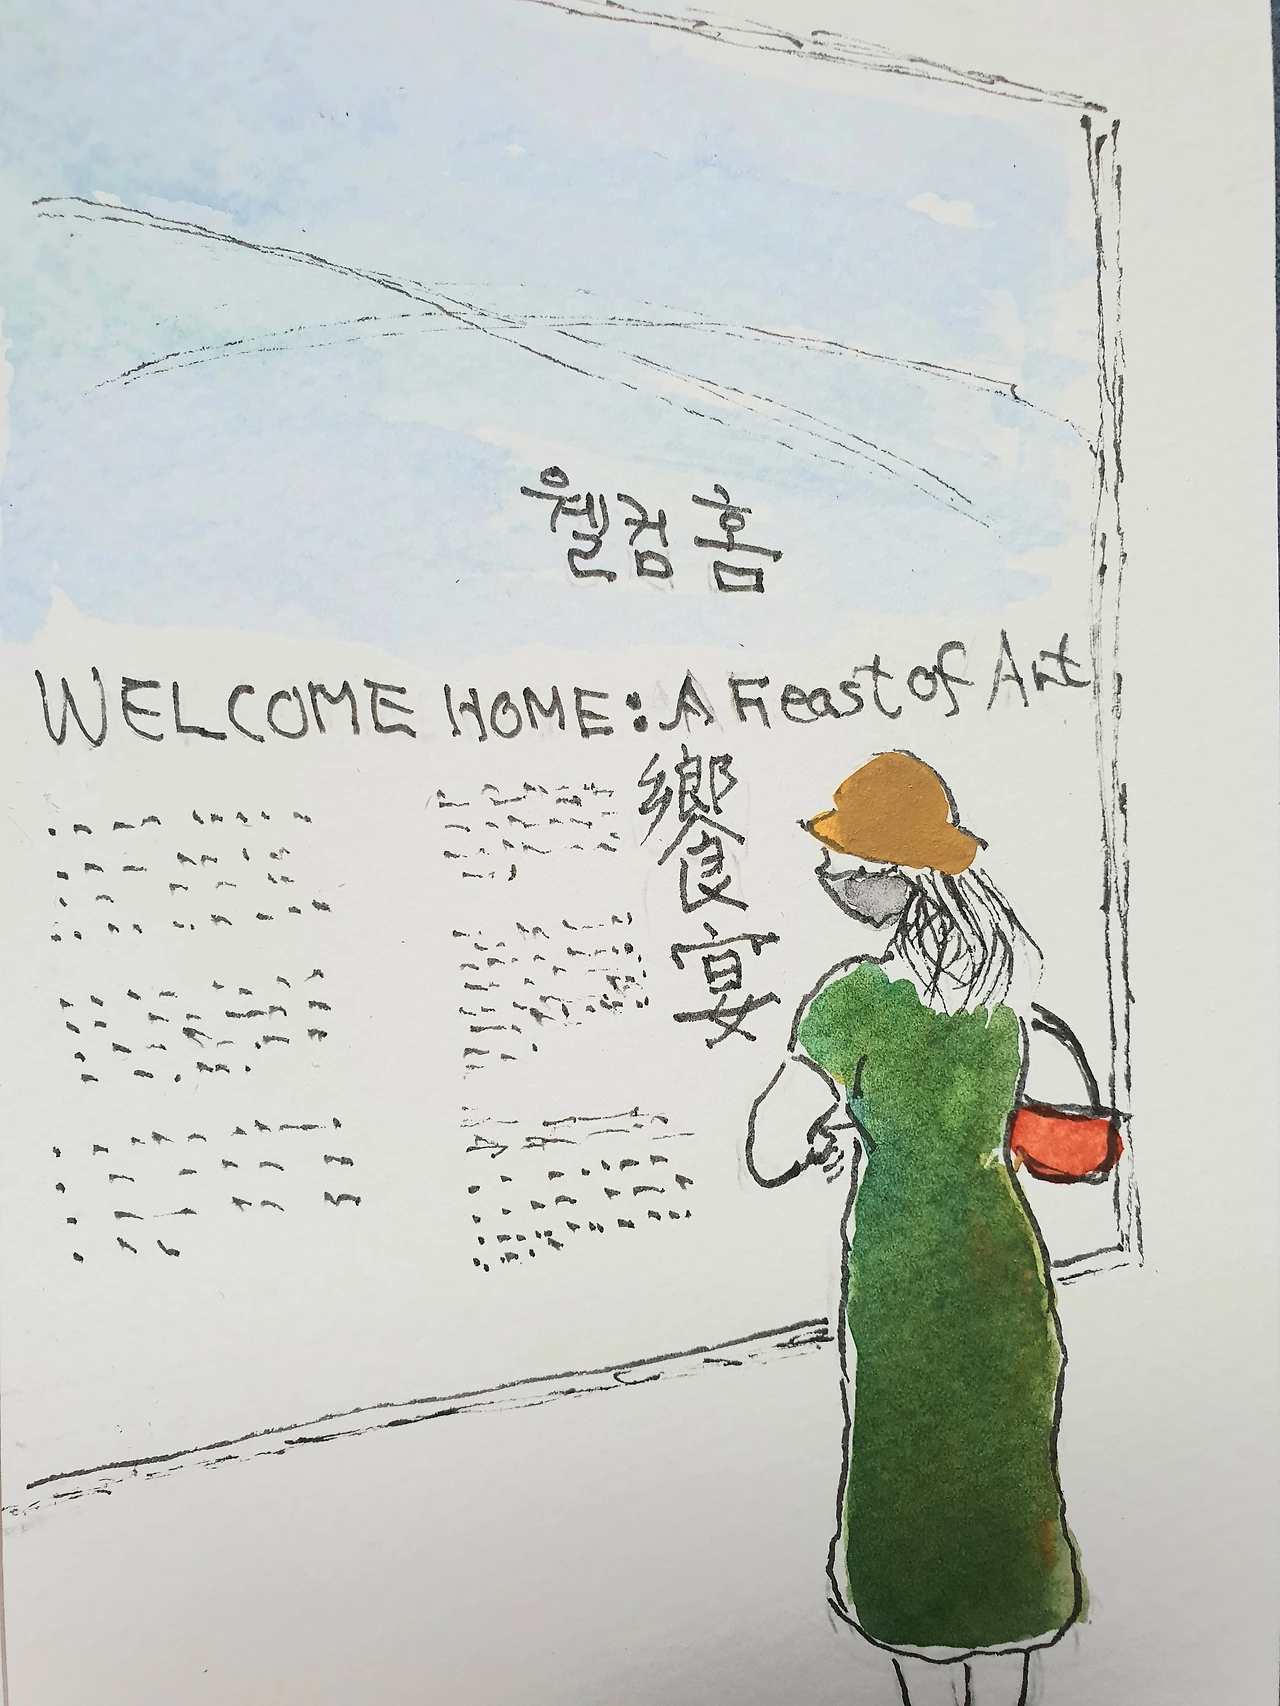 웰컴 홈
WELCOME HOME: A Feast of Art
饗宴